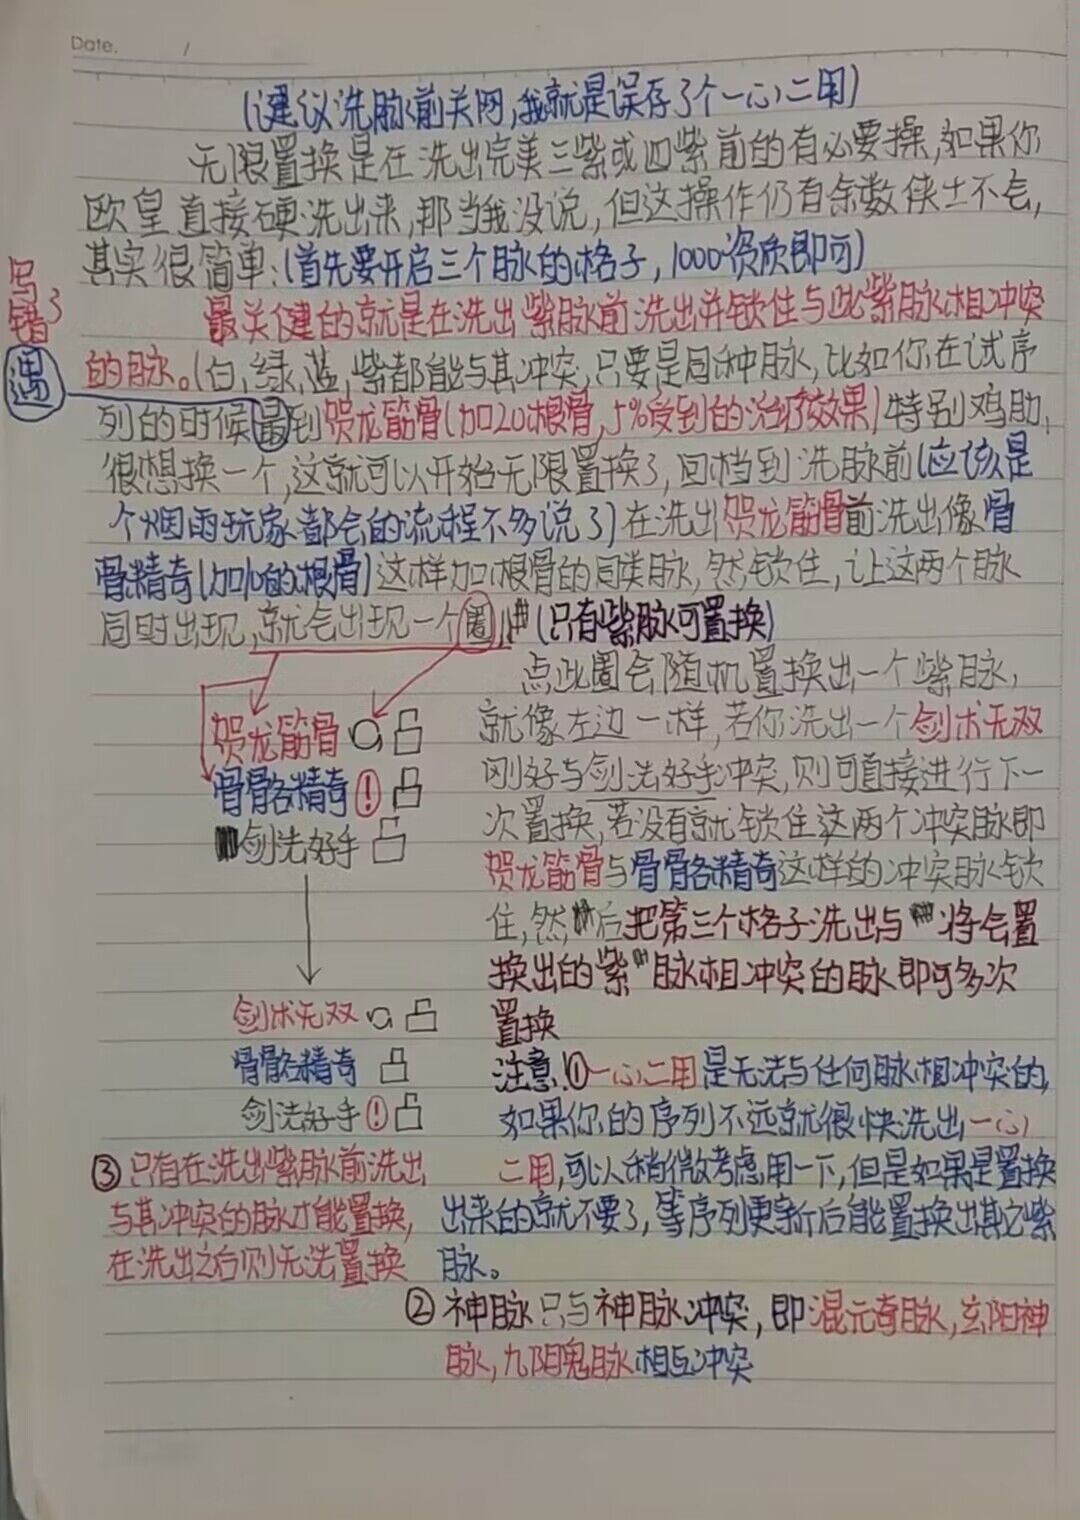 Date. /
(建议洗脉前关网,我就是误存了个一心二用)
无限置换是在洗出完美三紫或四紫前的有必要操,如果你
欧皇直接硬洗出来,那当我没说,但这操作仍有余数侠士不会,
其实很简单:(首先要开启三个脉的格子,1000资质即可)
写错了
遇
最关健的就是在洗出紫脉前洗出并锁住与此紫脉相冲突
的脉。(白,绿,蓝,紫都能与其冲突,只要是同种脉,比如你在试序
列的时候最到贺龙筋骨(加20根骨,5%受到的治疗效果)特别鸡肋,
很想换一个,这就可以开始无限置换了,回档到洗脉前(应该是
个烟雨玩家都会的流程不多说了)在洗出贺龙筋骨前洗出像骨
骨精奇(加10的根骨)这样加根骨的同类脉,然锁住,让这两个脉
同时出现,就会出现一个圈(只有紫脉可置换)
点此圈会随机置换出一个紫脉,
就像左边一样,若你洗出一个剑术无双
刚好与剑法好手冲突,则可直接进行下一
次置换,若没有就锁住这两个冲突脉即
贺龙筋骨与骨骼精奇这样的冲突脉锁
住,然后把第三个格子洗出与将会置
换出的紫脉相冲突的脉即可多次
置换
贺龙筋骨
骨骼精奇!
剑法好手
剑术无双
骨骼精奇
剑法好手!
注意!①一心二用是无法与任何脉相冲突的,
如果你的序列不远就很快洗出一心
二用,可以稍微考虑用一下,但是如果是置换
出来的就不要了,等序列更新后能置换出其它紫
脉。
③只有在洗出紫脉前洗出
与其冲突的脉才能置换,
在洗出之后则无法置换
②神脉只与神脉冲突,即混元奇脉,玄阳神
脉,九阴鬼脉相互冲突